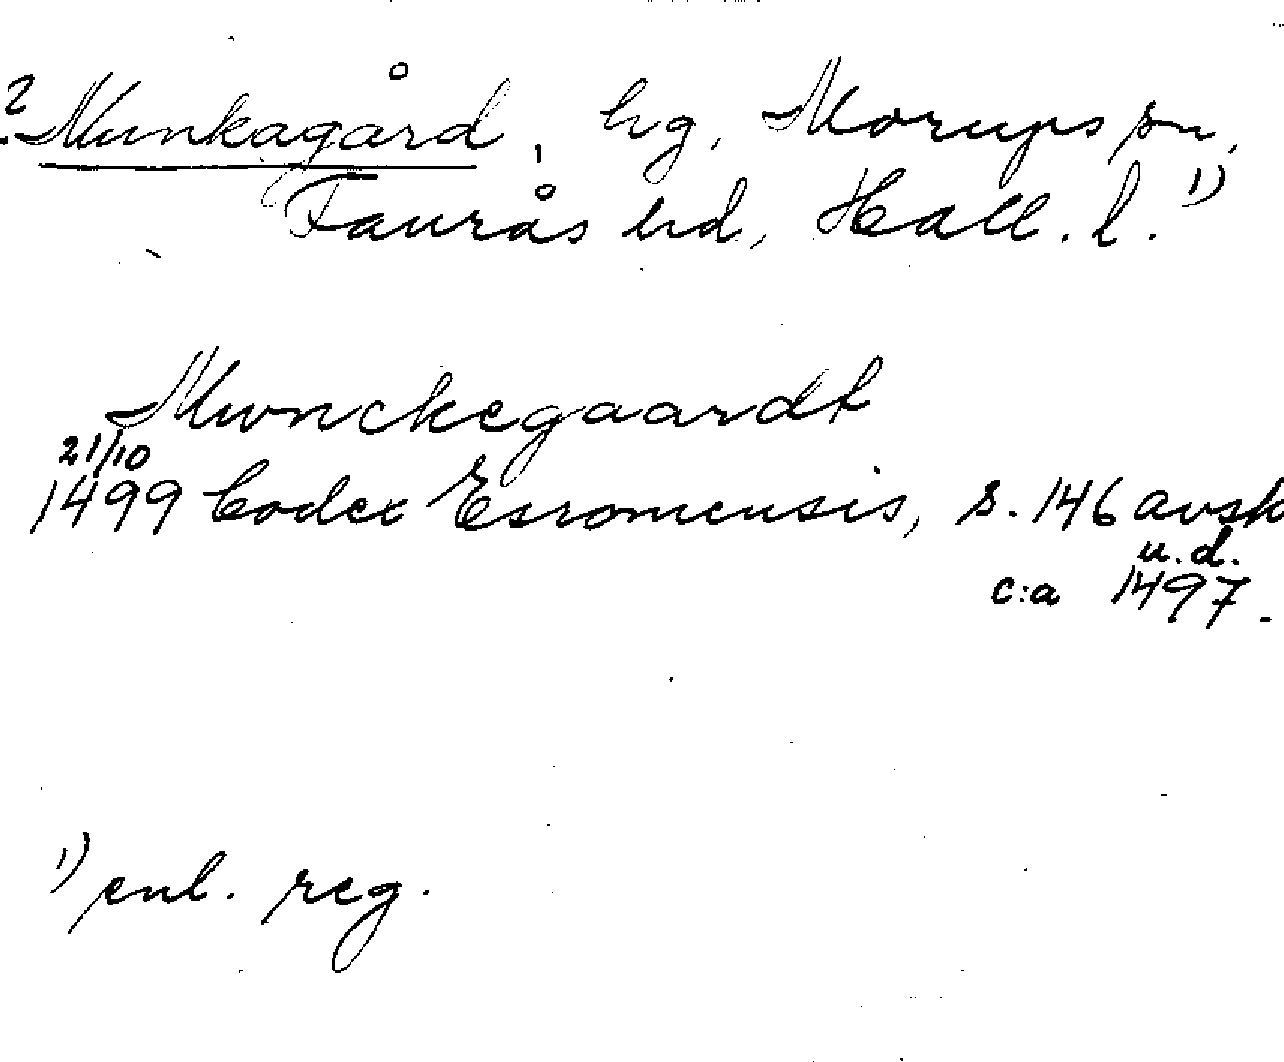 ? Munkagård, hg, Morups sn,
Faurås hd, Hall. l. 1)
Munckegaardt
21/10
1499 Codex Esromensis, s. 146 avsk
u.d.
c:a 1497.
1) enl. reg.